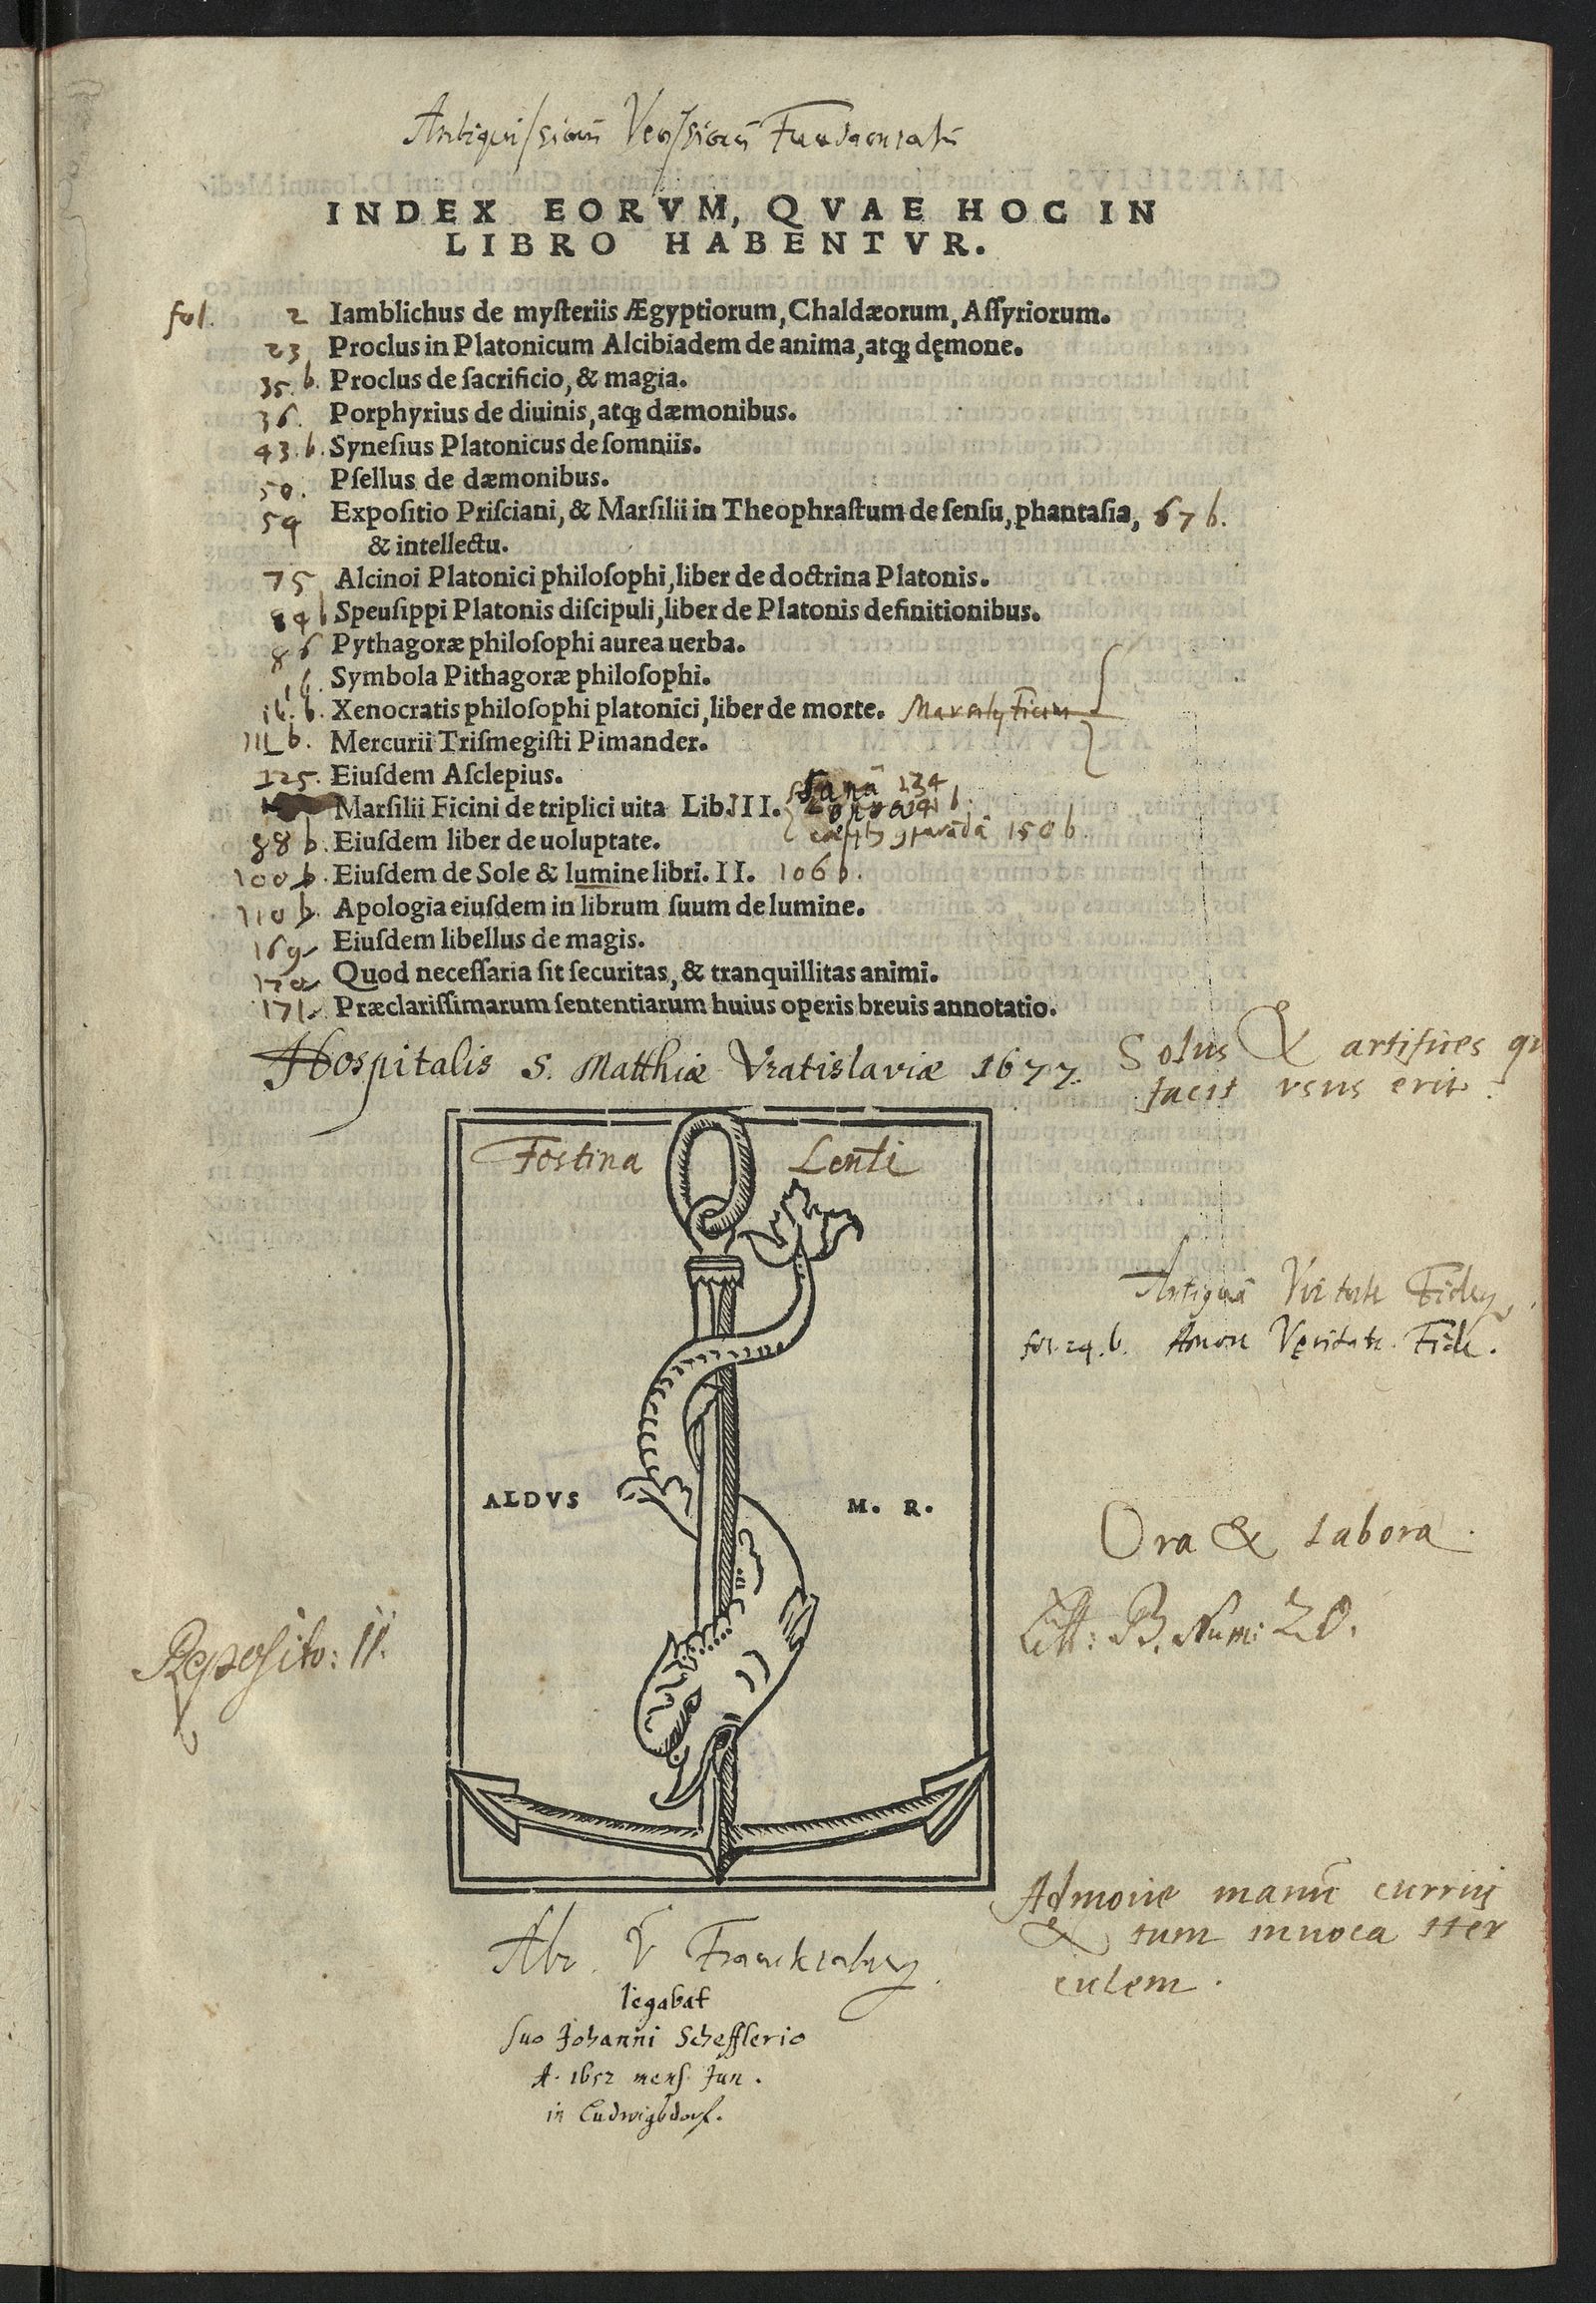 INDEX EORVM, QVAE HOC IN
LIBRO HABENTVR.
fol. 2 Iamblichus de myſteriis Ægyptiorum, Chaldæorum, Aſſyriorum.
23 Proclus in Platonicum Alcibiadem de anima, atqꝫ dęmone.
35. b. Proclus de ſacrificio, & magia.
36. Porphyrius de diuinis, atqꝫ dæmonibus.
43. b. Syneſius Platonicus de ſomniis.
50. Pſellus de dæmonibus.
59 Expoſitio Priſciani, & Marſilii in Theophraſtum de ſenſu, phantaſia, 67 b.
& intellectu.
75 Alcinoi Platonici philoſophi, liber de doctrina Platonis.
84 b Speuſippi Platonis diſcipuli, liber de Platonis definitionibus.
86 Pythagoræ philoſophi aurea uerba.
Symbola Pithagoræ philoſophi.
Xenocratis philoſophi platonici, liber de morte.
Mercurii Triſmegiſti Pimander.
125. Eiuſdem Aſclepius.
134
Marſilii Ficini de triplici uita Lib. III.
150 b.
88 b. Eiuſdem liber de uoluptate.
100 b. Eiuſdem de Sole & lumine libri. II. 106 b.
110 b. Apologia eiuſdem in librum ſuum de lumine.
169 Eiuſdem libellus de magis.
170 Quod neceſſaria ſit ſecuritas, & tranquillitas animi.
171. Præclariſſimarum ſententiarum huius operis breuis annotatio.
Hospitalis S. Matthiæ Vratislaviæ 1677.
Solus & artifices qui
facit usus erit.
Festina Lentè
fol. 29. b. Amore Veritate Fide.
ALDVS M. R.
Ora & labora.
Litt: B. Num: 20.
Reposito: II.
Admove manū
& tum invoca Her
culem.
Abr. V Franckenberg.
legabat
ſuo Johanni Schefflerio
A. 1652 menſ. Jun.
in Ludwigsdorf.